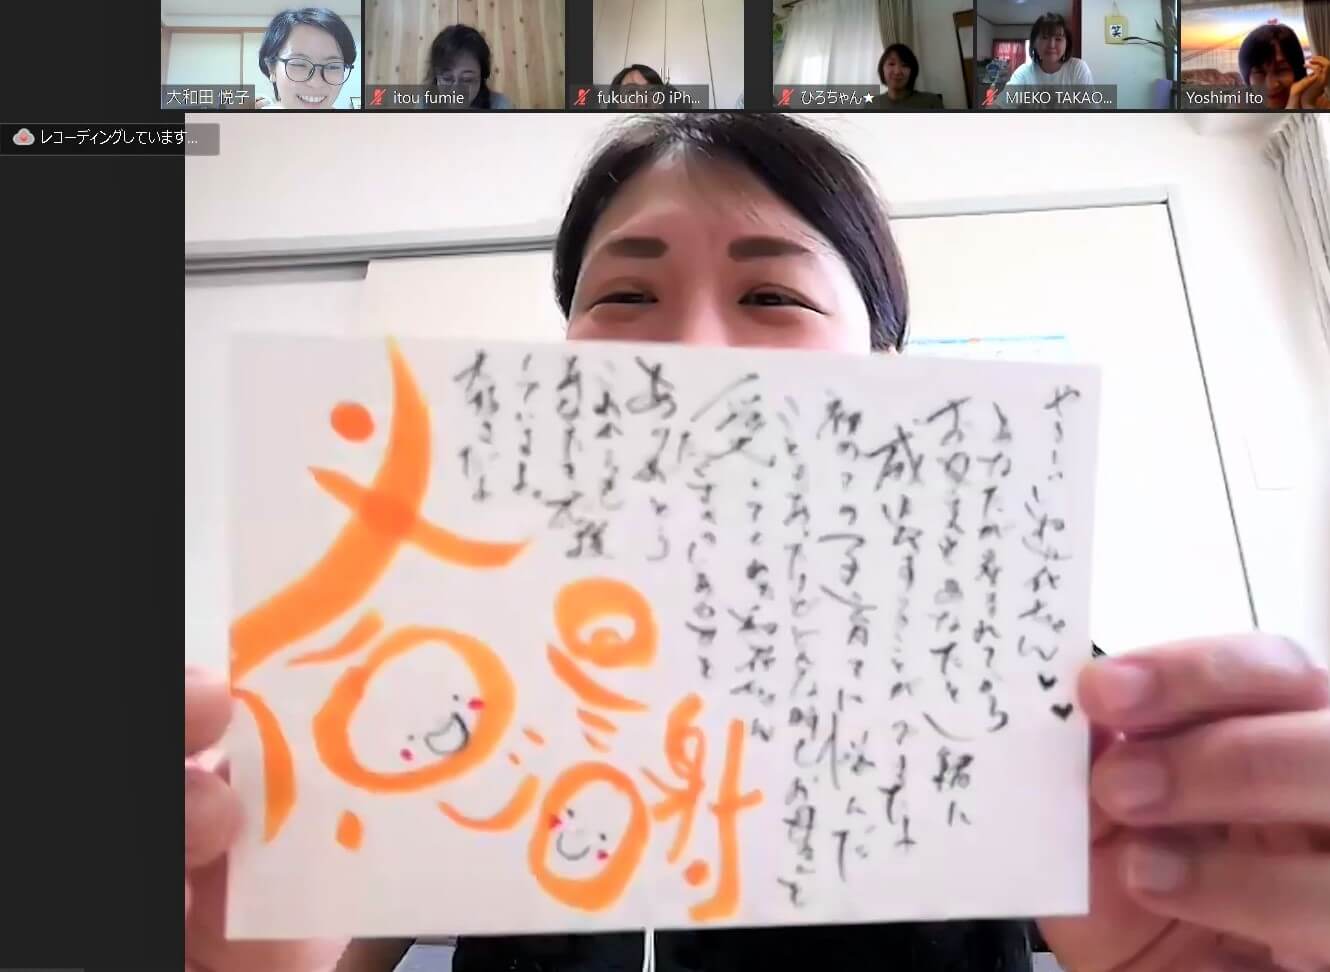 大和田 悦子
itou fumie
fukuchi の iPh...
ひろちゃん★
MIEKO TAKAO...
Yoshimi Ito
レコーディングしています...
ちゃん
あなたが産まれてから
お母さんもあなたと一緒に
成長することができたよ
初めての子育てに悩んだ
こともあったけどどんな時もお母さんを
愛してくれる
たくさんのしあわせを
ありがとう
これからも
あなたを応援
しているよ。
大好きだよ